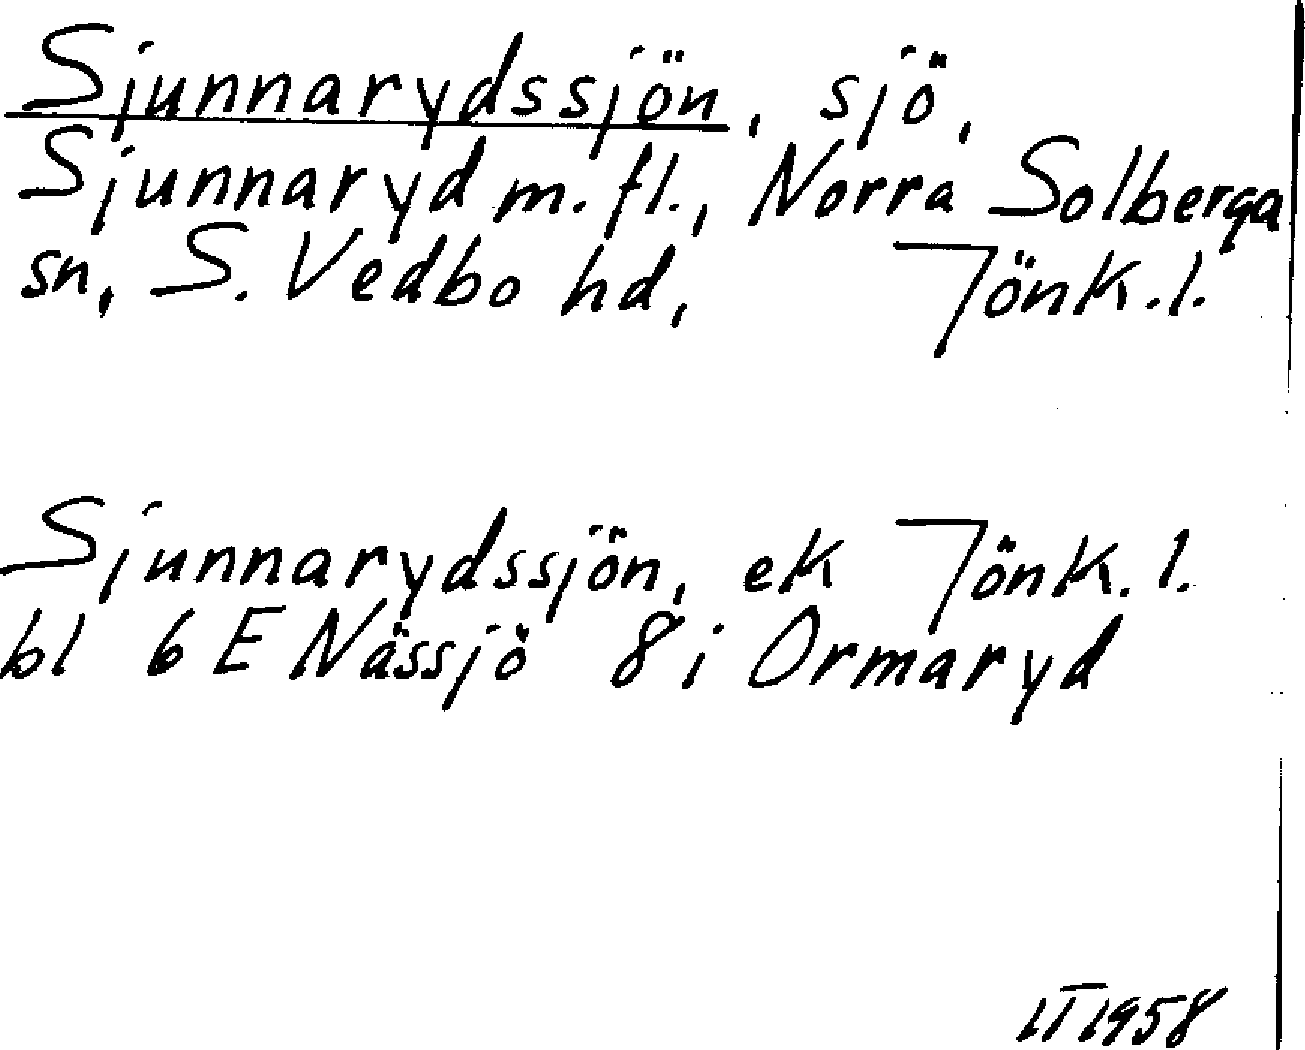 Sjunnarydssjön, sjö,
Sjunnaryd m.fl., Norra Solberga
sn, S. Vedbo hd, Jönk.l.
Sjunnarydssjön, ek Jönk.l.
bl 6 E Nässjö 8 i Ormaryd
1958